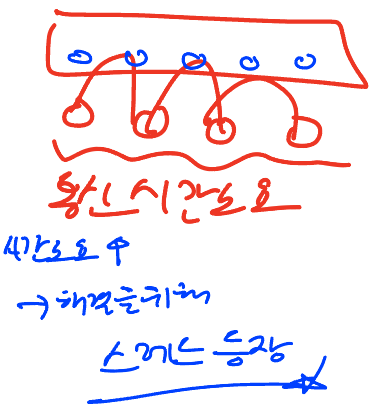 통신 시간소요
시간소요 ↑
→ 해결을 위해
스레드 등장